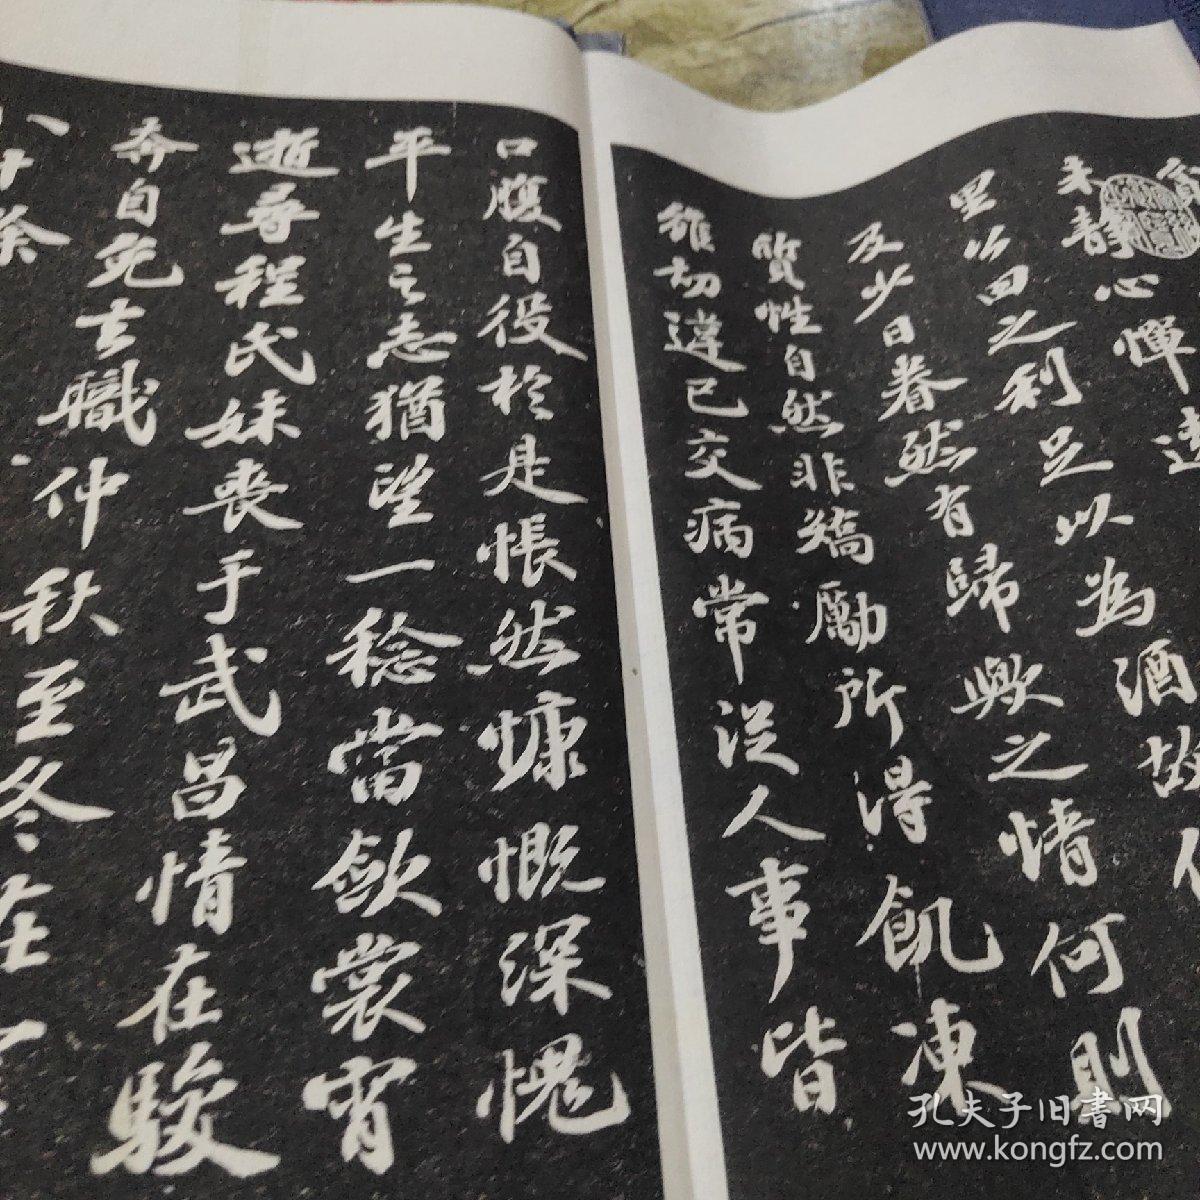 未靜心憚遠
里公田之利足以為酒故
及少日眷然有歸歟之情何則
質性自然非矯勵所得飢凍
雖切違已交病常從人事皆
口腹自役於是悵然慷慨深愧
平生之志猶望一稔當斂裳宵
逝尋程氏妹喪于武昌情在駿
奔自免去職仲秋至冬在
餘
孔夫子旧书网
www.kongfz.com